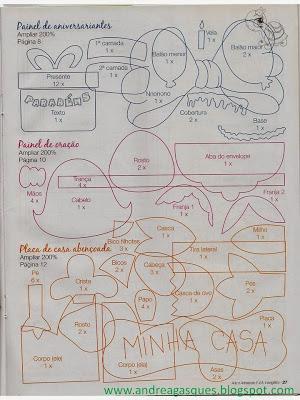 Painel de aniversariantes
Ampliar 200%
Página 8
1ª camada
1 x
2ª camada
3 x
Presente
12 x
PARABÉNS
Texto
1 x
Balão menor
1 x
Vela
1 x
Balão maior
2 x
Nnonono
1 x
Cobertura
2 x
Base
1 x
Painel de oração
Ampliar 200%
Página 10
Rosto
2 x
Aba do envelope
1 x
Trança
4 x
Mãos
4 x
Cabelo
1 x
Franja 1
1 x
Franja 2
1 x
Placa de casa abençoada
Ampliar 200%
Página 12
Casca
1 x
Milho
1 x
Bico filhotes
3 x
Tira lateral
1 x
Pé
6 x
Crista
1 x
Bicos
2 x
Cabeça
3 x
Pés
2 x
Papo
4 x
Casca de ovo
1 x
Placa
1 x
Rosto
2 x
MINHA CASA
Corpo (ele)
1 x
Corpo (ela)
1 x
Asas
2 x
27
www.andreagasques.blogspot.com